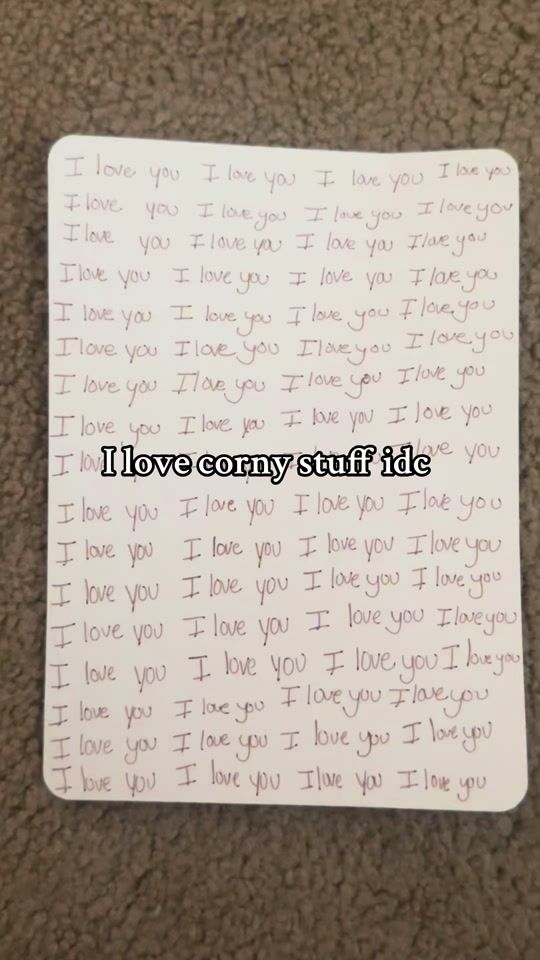 I love you I love you I love you I love you
I love you I love you I love you I love you
I love you I love you I love you I love you
I love you I love you I love you I love you
I love you I love you I love you I love you
I love you I love you I love you I love you
I love you I love you I love you I love you
I love you I love you I love you I love you
I love you
I love corny stuff idc
I love you I love you I love you I love you
I love you I love you I love you I love you
I love you I love you I love you I love you
I love you I love you I love you I love you
I love you I love you I love you I love you
I love you I love you I love you I love you
I love you I love you I love you I love you
I love you I love you I love you I love you